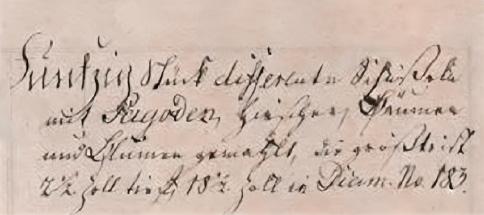 Funfzig Stück differente Schüßeln
mit Pagoden, Hirschen, Bäumen
und Blumen gemahlt, die größte ist
2½ Zoll tief, 18½ Zoll in Diam. No. 183.